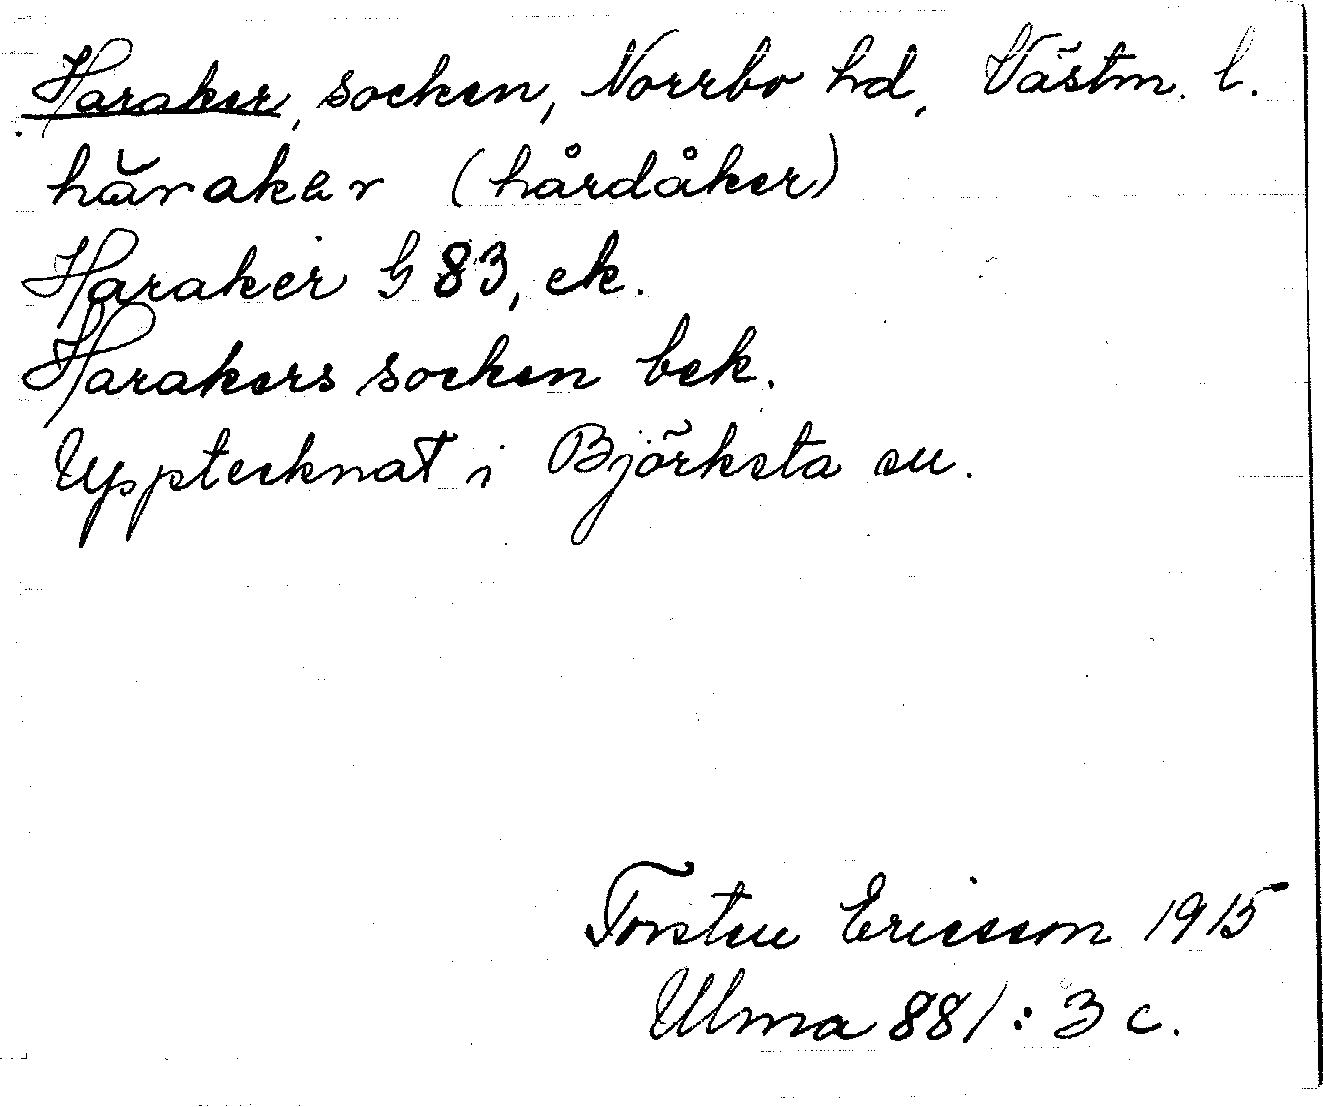 Haraker, socken, Norrbo hd, Västm. l.
håraker (hårdåker)
Haraker G 83, ek.
Harakers socken bek.
Upptecknat i Björksta sn.
Torsten Ericsson 1915
Ulma 881:3 c.